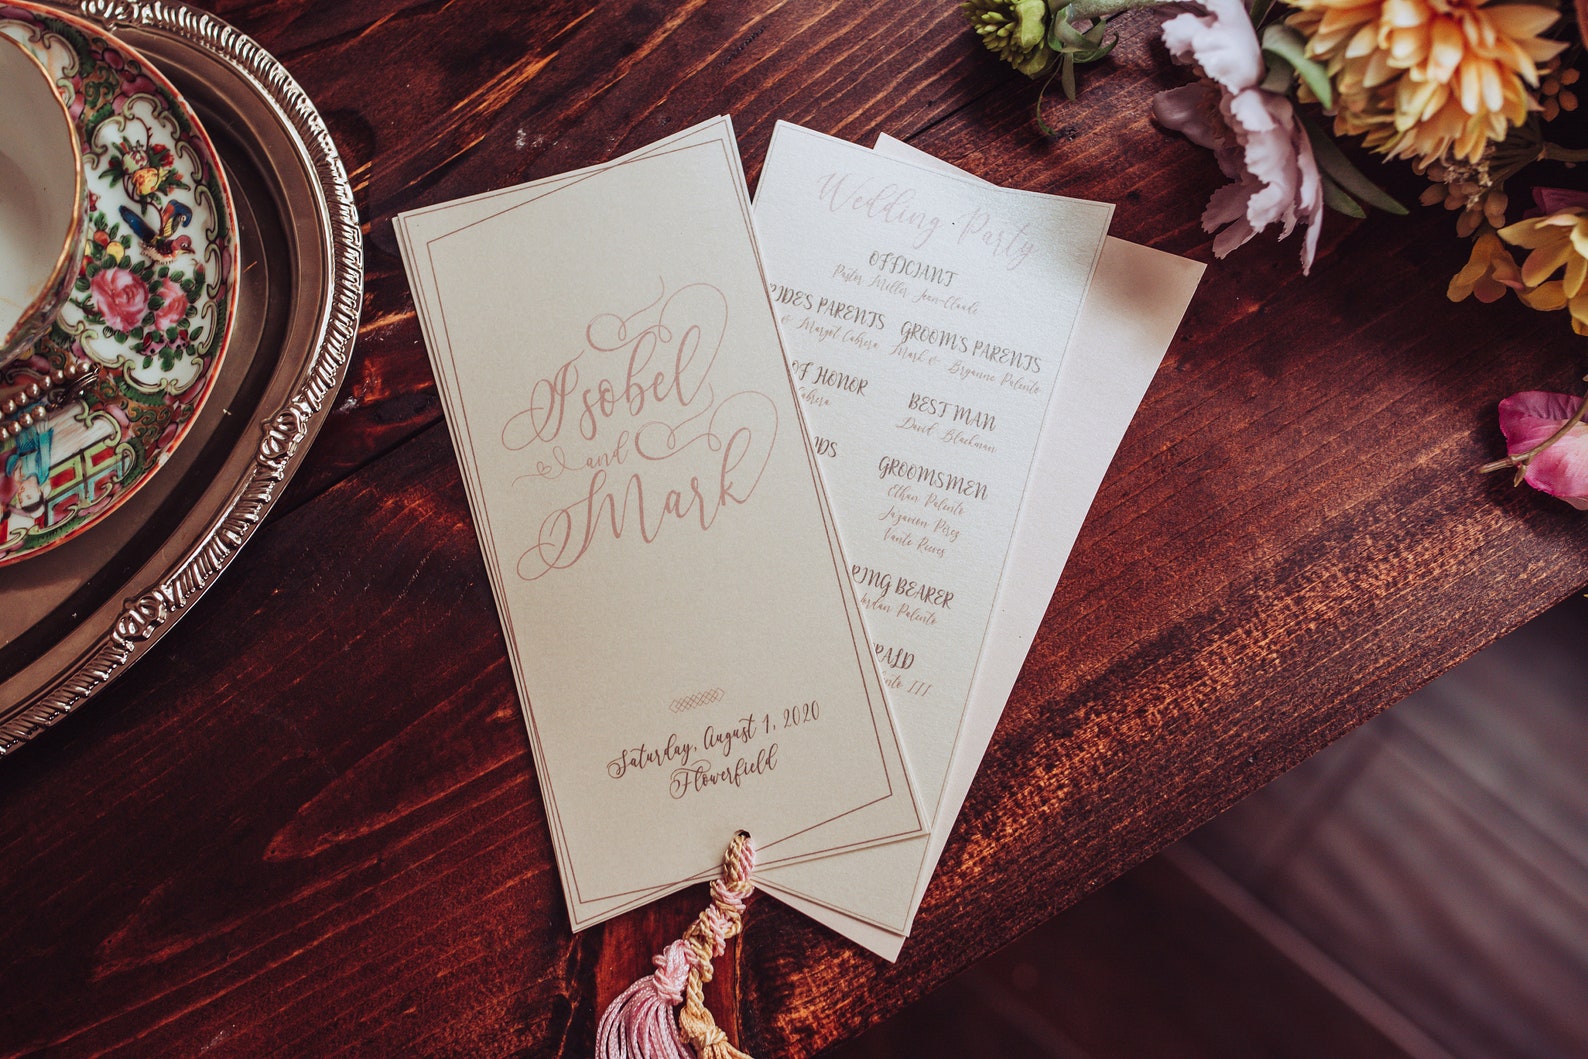 Isobel
and
Mark
Saturday, August 1, 2020
Flowerfield
Wedding Party
OFFICIANT
Pastor Miller Jean-Claude
RIDES PARENTS
& Margot Cabrera
GROOM'S PARENTS
Mark & Bryanne Palente
OF HONOR
Cabrera
BEST MAN
David Blackman
DS
GROOMSMEN
Ethan Palente
Perez
Vante Reeves
RING BEARER
Jordan Palente
III